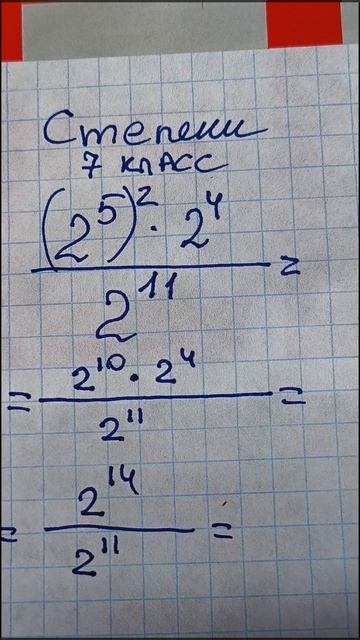 Степени
7 класс
(2⁵)² · 2⁴
2¹¹ =
= 2¹⁰ · 2⁴ =
2¹¹
= 2¹⁴ =
2¹¹